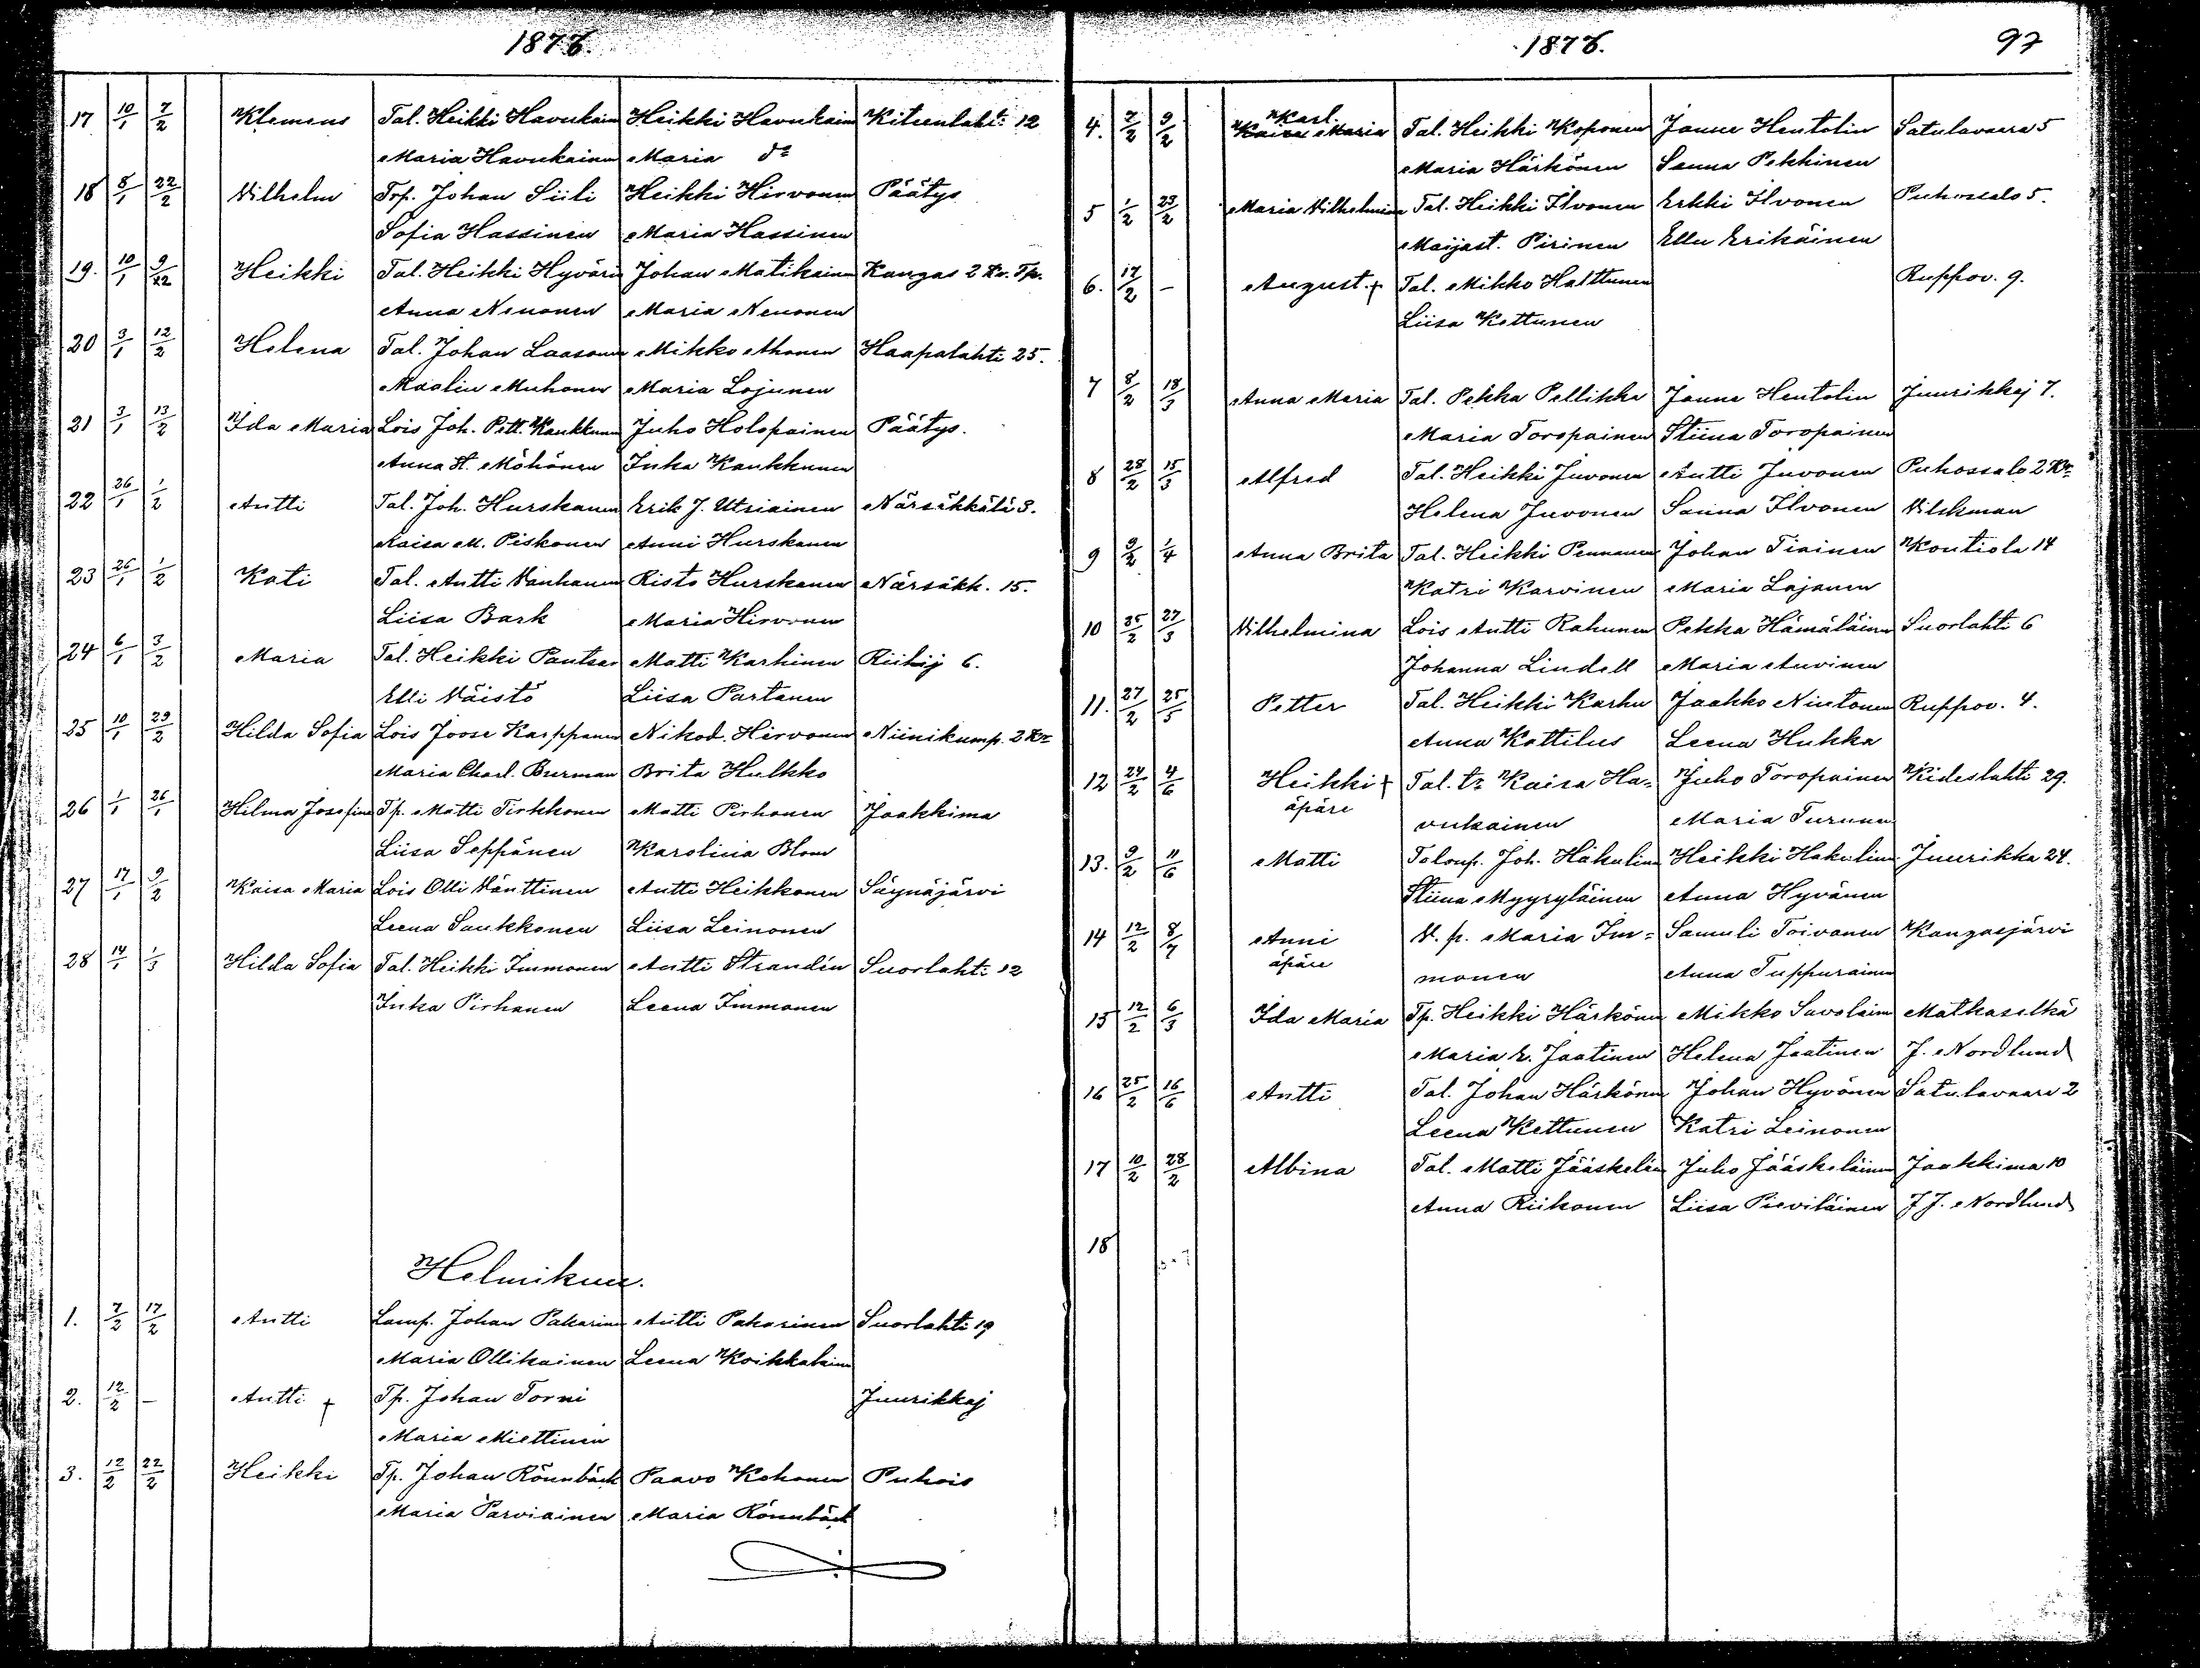 1878.
17 10/1 7/2 Klemens Tal. Heikki Havukain Heikki Havukain Kiteenlahti 12
Maria Havukainen Maria d:o
18 8/1 22/2 Vilhelm Trp. Johan Siili Heikki Hirvonen Päätys
Sofia Hassinen Maria Hassinen
19. 10/1 9/12 Heikki Tal. Heikki Hyvärin Johan Matikainen Kangas 2 Kr. Tp.
Anna Nenonen Maria Nenonen
20 3/1 12/2 Helena Tal. Johan Laasonen Mikko Ahonen Haapalahti 25.
Maaliu Muhonen Maria Lojunen
21 3/1 13/2 Ida Maria Lois Joh. Pett. Kaukkunen Juho Holopainen Päätys.
Anna H. Möhönen Inka Kaukkunen
22 26/1 1/2 Antti Tal. Joh. Hurskanen Erik J. Utriainen Närsäkkälä 3.
Kaisa M. Piskonen Anni Hurskanen
23 26/1 1/2 Kati Tal. Antti Vanhanen Risto Hurskanen Närsäkk. 15.
Liisa Bark Maria Hirvonen
24 6/1 3/2 Maria Tal. Heikki Pantsar Matti Karhinen Riihij 6.
Elli Väistö Liisa Partanen
25 10/1 23/2 Hilda Sofia Lois Joose Karppanen Nikod. Hirvonen Niinikump. 2 Kr
Maria Charl. Burman Brita Hulkko
26 1/1 26/1 Hilma Josefina Tp. Matti Tirkkonen Matti Pirhonen Jaakkima
Liisa Seppänen Karolina Blom
27 17/1 9/2 Kaisa Maria Lois Olli Vänttinen Antti Heikkonen Säynäjärvi
Leena Saukkonen Liisa Leinonen
28 14/1 1/3 Hilda Sofia Tal. Heikki Immonen Antti Strandén Suorlahti 12
Inka Pirhonen Leena Immonen
Helmikuu.
1. 7/2 17/2 Antti Lamp. Johan Pakarinen Antti Pakarinen Suorlahti 19
Maria Ollikainen Leena Koikkalain
2. 12/2 — Antti † Tp. Johan Torni Juurikkaj
Maria Miettinen
3. 12/2 22/2 Heikki Tp. Johan Rönnbäck Paavo Kohonen Puhois
Maria Parviainen Maria Rönnbäck
1878. 97
Karl.
4. 7/2 9/2 Kaisa Maria Tal. Heikki Koponen Janne Hentolin Satulavaara 5
Maria Härkönen Sanna Pekkinen
5 1/2 23/2 Maria Vilhelmina Tal. Heikki Ilvonen Erkki Ilvonen Puhossalo 5.
Maijast. Pirinen Ella Erikäinen
6. 17/2 — August. † Tal. Mikko Halttunen Ruppov. 9.
Liisa Kettunen
7 8/2 18/3 Anna Maria Tal. Pekka Pellikka Janne Hentolin Juurikkaj 7.
Maria Toropainen Stiina Toropainen
8 28/2 15/3 Alfred Tal. Heikki Juvonen Antti Juvonen Puhossalo 2 Kr
Helena Juvonen Sanna Ilvonen Vilckman
9 9/2 1/4 Anna Brita Tal. Heikki Pennanen Johan Tiainen Kontiola 14
Katri Karvinen Maria Lajunen
10 25/2 27/3 Vilhelmina Lois Antti Rahunen Pekka Hämäläinen Suorlahti 6
Johanna Lindell Maria Auvinen
11. 27/2 25/5 Petter Tal. Heikki Karhu Jaakko Niutonen Ruppov. 4.
Anna Kattilus Leena Hukka
12 24/2 4/6 Heikki † Tal. tr Kaisa Ha= Juho Toropainen Kideslahti 29.
äpäre vukainen Maria Turunen
13. 9/2 11/6 Matti Talonp. Joh. Hakulin Heikki Hakulin Juurikka 24.
Stiina Myyryläinen Anna Hyvänen
14 12/2 8/7 Anni V. p. Maria Im= Samuli Toivanen Kangasjärvi
äpäre monen Anna Tuppurainen
15 12/2 6/3 Ida Maria Tp. Heikki Härkönen Mikko Savolain Matkaselkä
Maria E. Jaatinen Helena Jaatinen J. Nordlund
16 25/2 16/6 Antti Tal. Johan Härkönen Johan Hyvönen Satulavaara 2
Leena Kettunen Katri Leinonen
17 10/2 28/2 Albina Tal. Matti Jääskeläin Juho Jääskeläinen Jaakkima 10
Anna Riikonen Liisa Pieviläinen J J. Nordlund
18